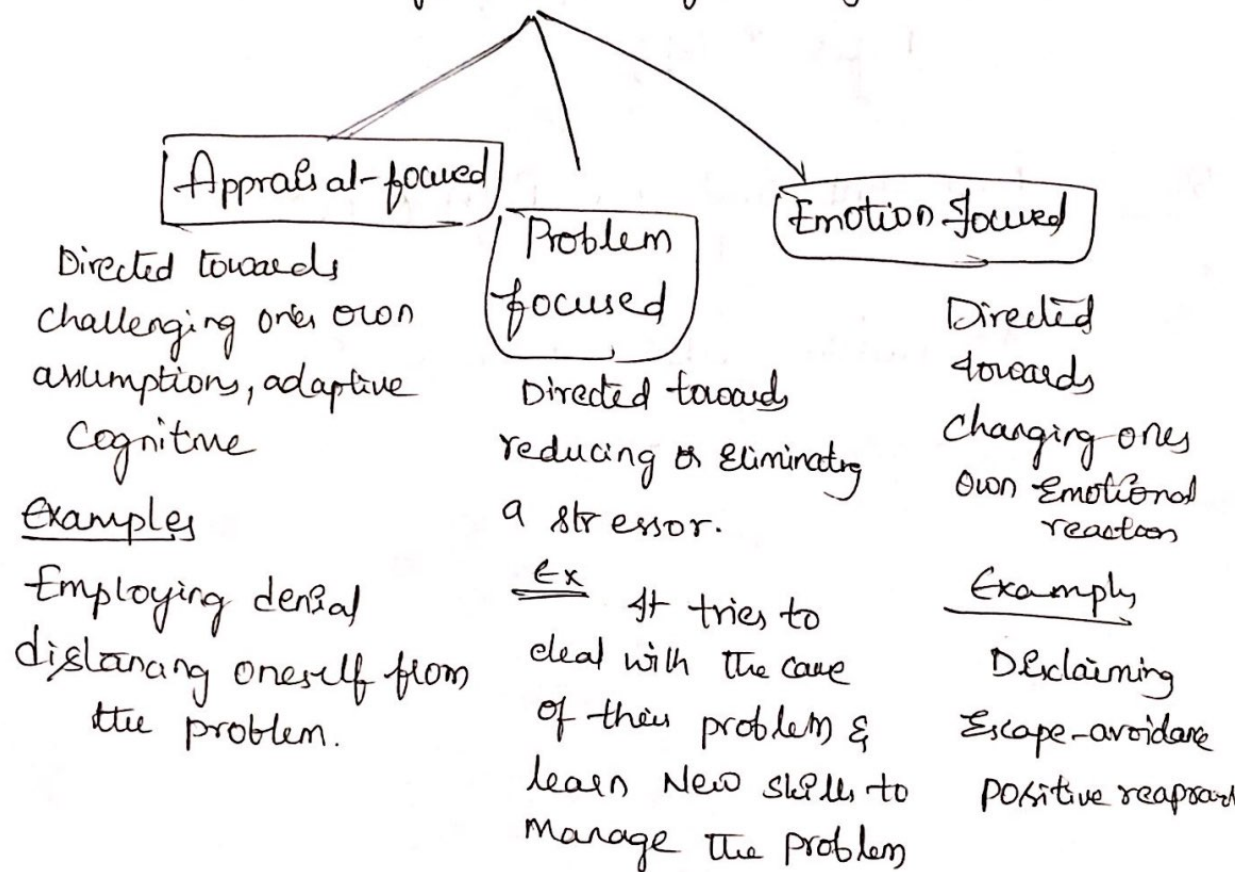 Appraisal-focused
Directed towards
challenging ones own
assumptions, adaptive
Cognitive
Examples
Employing denial
distancing oneself from
the problem.
Problem
focused
Directed towards
reducing or Eliminating
a stressor.
Ex It tries to
deal with the cause
of their problem &
learn New skills to
Manage the problem
Emotion focused
Directed
towards
changing ones
own Emotional
reaction
Examples
Disclaiming
Escape-avoidance
Positive